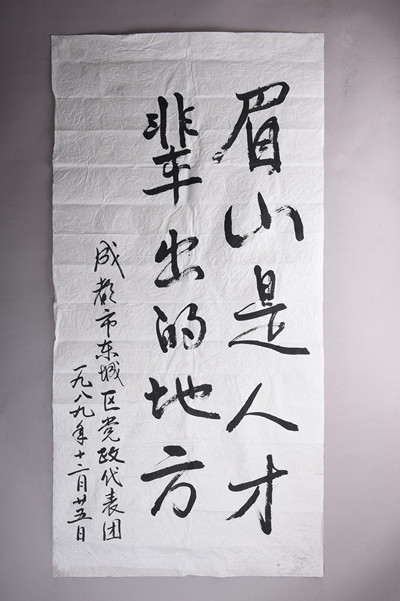 眉山是人才
辈出的地方
成都市东城区党政代表团
一九八九年十二月廿五日